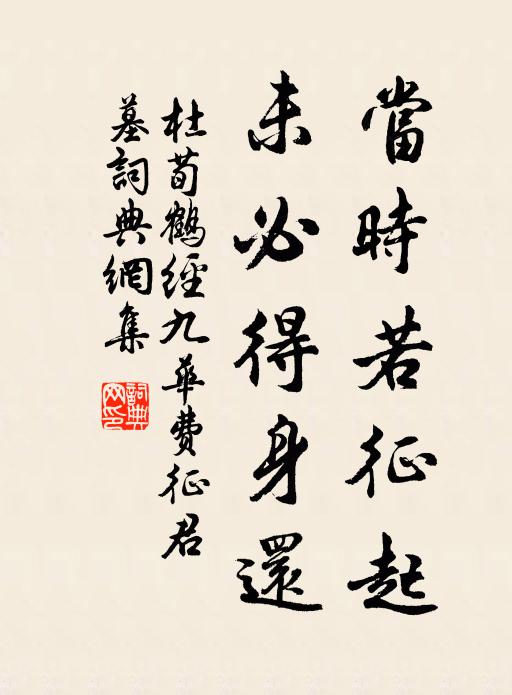 當時若征起
未必得身還
杜荀鶴經九華費征君
墓詞典網集
詞典網印